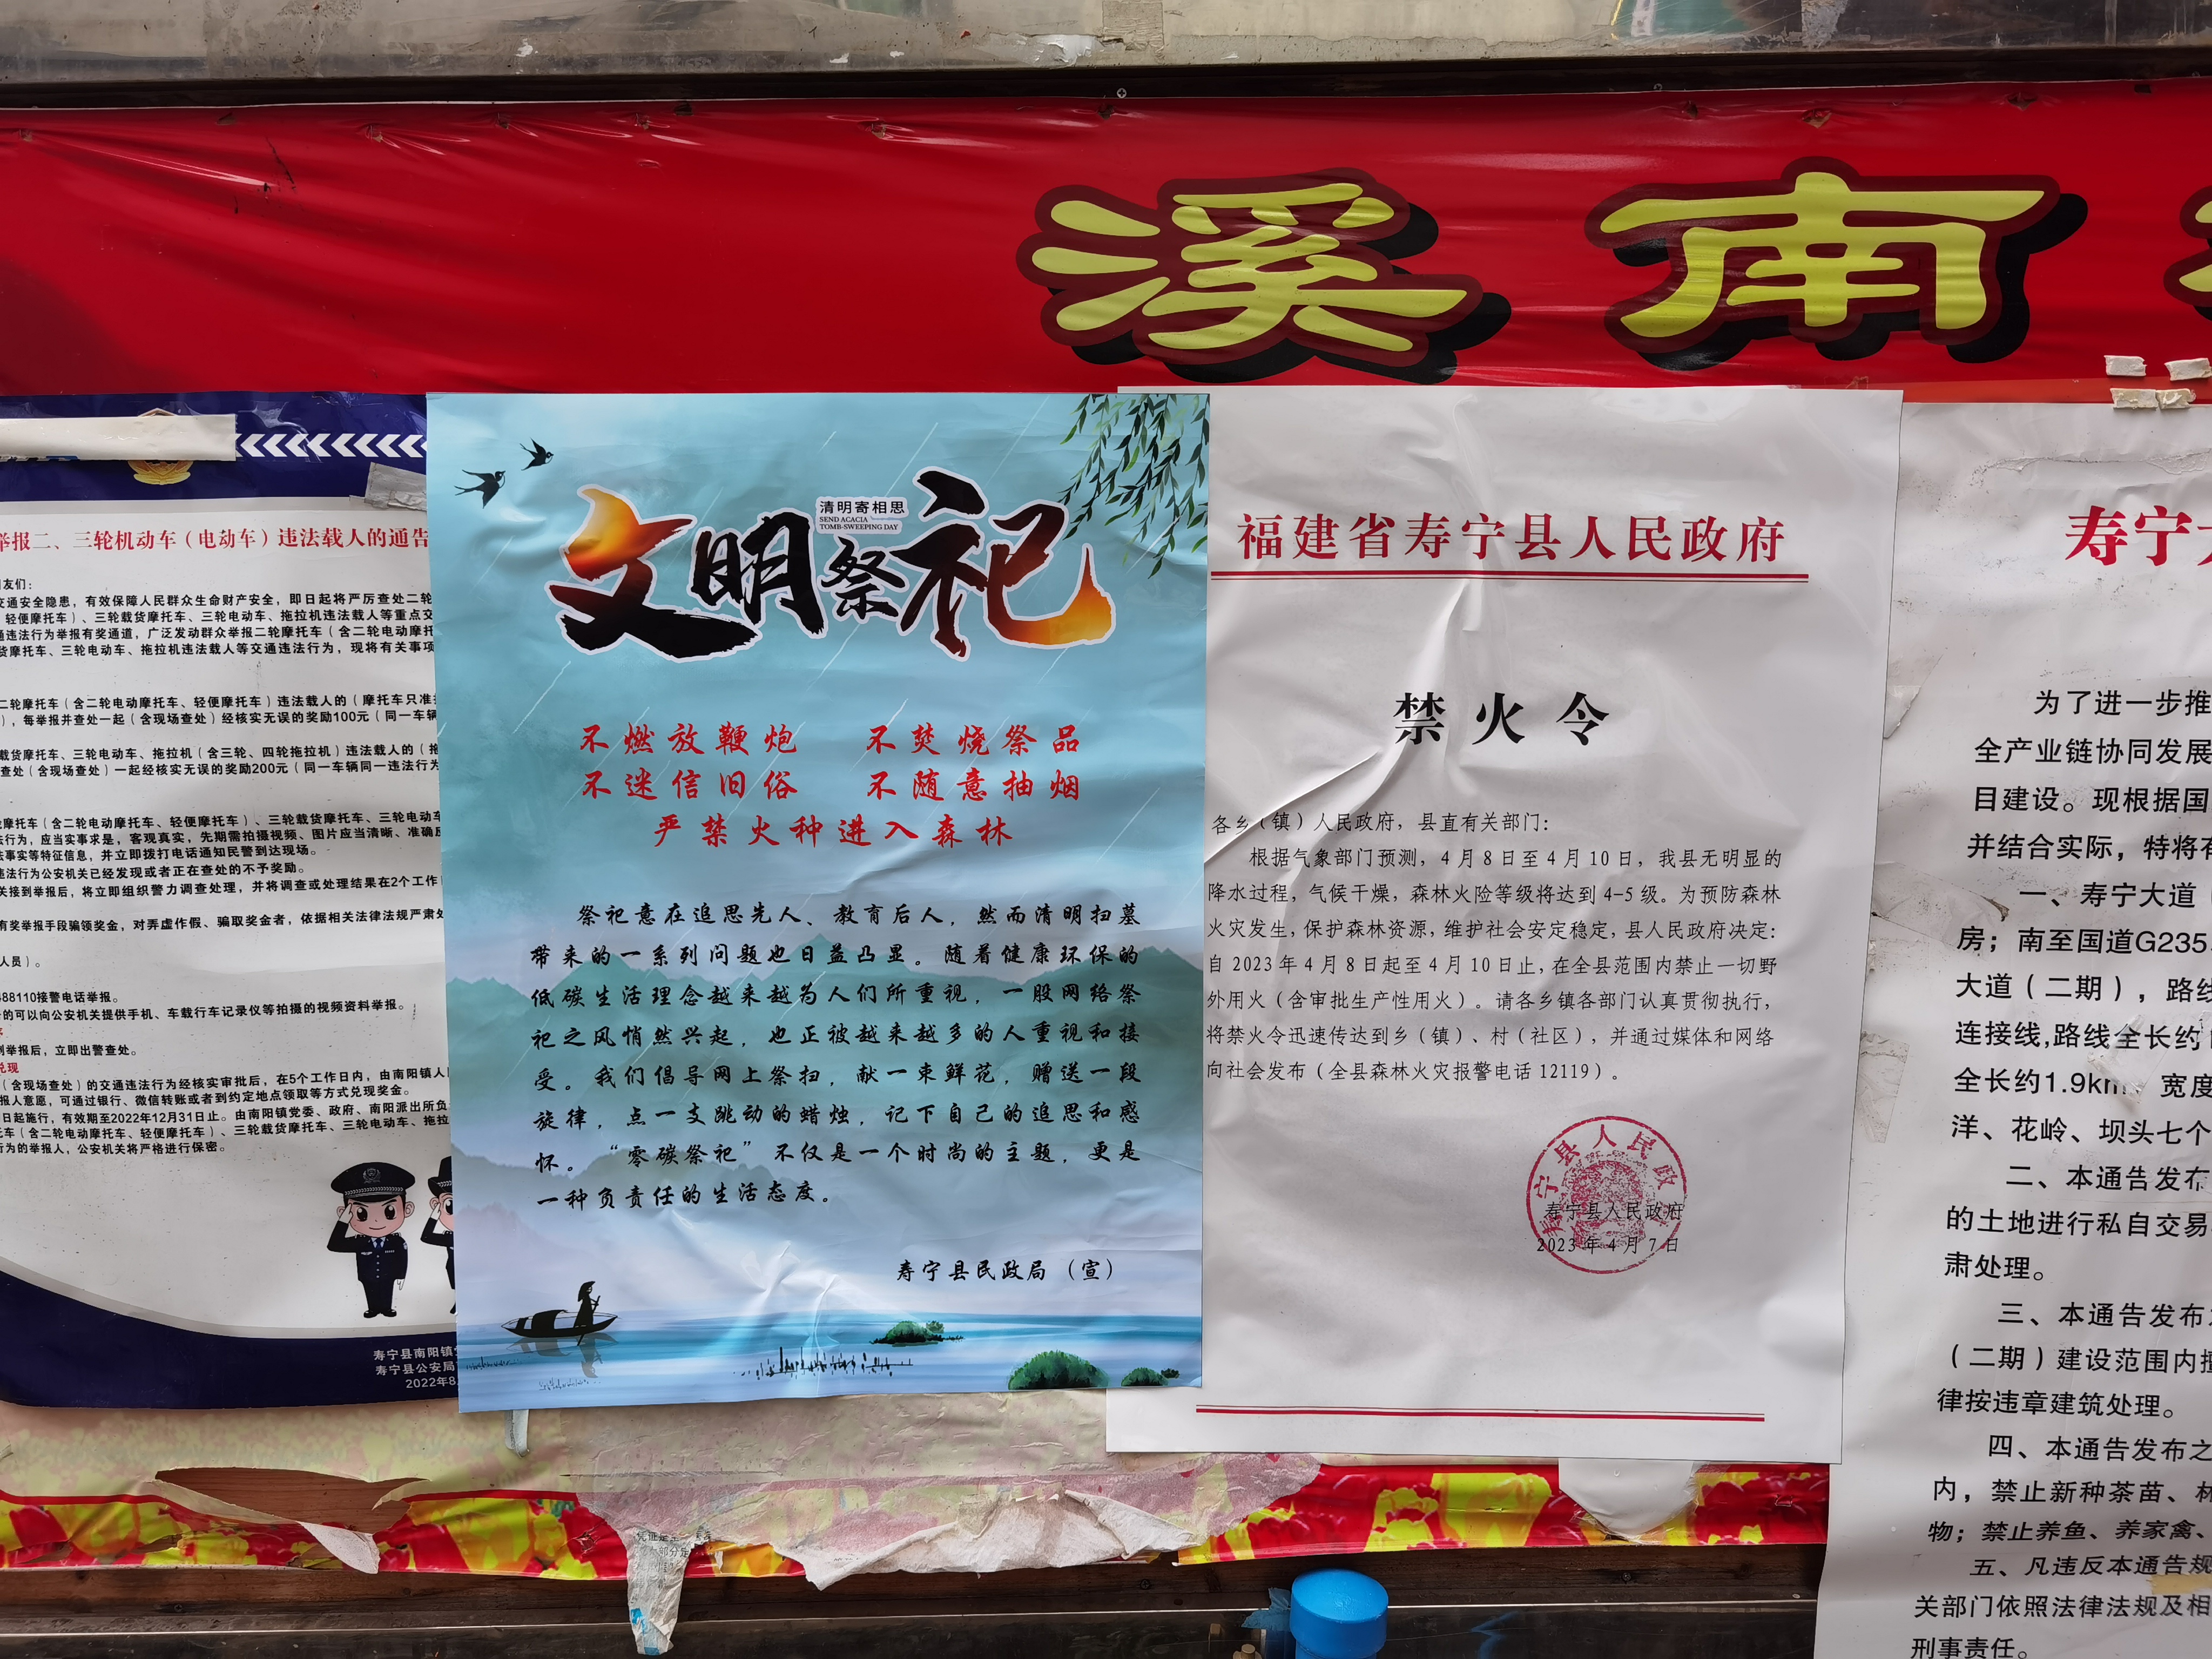 溪南
举报二、三轮机动车（电动车）违法载人的通告
友们：
交通安全隐患，有效保障人民群众生命财产安全，即日起将严厉查处二轮
轻便摩托车）、三轮载货摩托车、三轮电动车、拖拉机违法载人等重点交
通违法行为举报有奖通道，广泛发动群众举报二轮摩托车（含二轮电动摩托
货摩托车、三轮电动车、拖拉机违法载人等交通违法行为，现将有关事项
二轮摩托车（含二轮电动摩托车、轻便摩托车）违法载人的（摩托车只准
），每举报并查处一起（含现场查处）经核实无误的奖励100元（同一车辆
载货摩托车、三轮电动车、拖拉机（含三轮、四轮拖拉机）违法载人的（拖
查处（含现场查处）一起经核实无误的奖励200元（同一车辆同一违法行为
摩托车（含二轮电动摩托车、轻便摩托车）、三轮载货摩托车、三轮电动车
法行为，应当实事求是，客观真实，先期需拍摄视频、图片应当清晰、准确反
法事实等特征信息，并立即拨打电话通知民警到达现场。
违法行为公安机关已经发现或者正在查处的不予奖励。
关接到举报后，将立即组织警力调查处理，并将调查或处理结果在2个工作
有奖举报手段骗领奖金，对弄虚作假、骗取奖金者，依据相关法律法规严肃处
人员）。
488110接警电话举报。
的可以向公安机关提供手机、车载行车记录仪等拍摄的视频资料举报。
到举报后，立即出警查处。
兑现
（含现场查处）的交通违法行为经核实审批后，在5个工作日内，由南阳镇人
报人意愿，可通过银行、微信转账或者到约定地点领取等方式兑现奖金。
日起施行，有效期至2022年12月31日止。由南阳镇党委、政府、南阳派出所负
托车（含二轮电动摩托车、轻便摩托车）、三轮载货摩托车、三轮电动车、拖拉
行为的举报人，公安机关将严格进行保密。
寿宁县南阳镇
寿宁县公安局
2022年8
清明寄相思
SEND ACACIA
TOMB-SWEEPING DAY
文明祭祀
不燃放鞭炮 不焚烧祭品
不迷信旧俗 不随意抽烟
严禁火种进入森林
祭祀意在追思先人、教育后人，然而清明扫墓
带来的一系列问题也日益凸显。随着健康环保的
低碳生活理念越来越为人们所重视，一股网络祭
祀之风悄然兴起，也正被越来越多的人重视和接
受。我们倡导网上祭扫，献一束鲜花，赠送一段
旋律，点一支跳动的蜡烛，记下自己的追思和感
怀。“零碳祭祀”不仅是一个时尚的主题，更是
一种负责任的生活态度。
寿宁县民政局（宣）
福建省寿宁县人民政府
禁火令
各乡（镇）人民政府，县直有关部门：
根据气象部门预测，4月8日至4月10日，我县无明显的
降水过程，气候干燥，森林火险等级将达到4-5级。为预防森林
火灾发生，保护森林资源，维护社会安定稳定，县人民政府决定：
自2023年4月8日起至4月10日止，在全县范围内禁止一切野
外用火（含审批生产性用火）。请各乡镇各部门认真贯彻执行，
将禁火令迅速传达到乡（镇）、村（社区），并通过媒体和网络
向社会发布（全县森林火灾报警电话12119）。
寿宁县人民政府
寿宁县人民政府
2023年4月7日
寿宁
为了进一步推
全产业链协同发展
目建设。现根据国
并结合实际，特将有
一、寿宁大道
房；南至国道G235
大道（二期），路线
连接线,路线全长约
全长约1.9km、宽度
洋、花岭、坝头七个
二、本通告发布
的土地进行私自交易
肃处理。
三、本通告发布
（二期）建设范围内擅
律按违章建筑处理。
四、本通告发布之
内，禁止新种茶苗、林
物；禁止养鱼、养家禽、
五、凡违反本通告规
关部门依照法律法规及相
刑事责任。